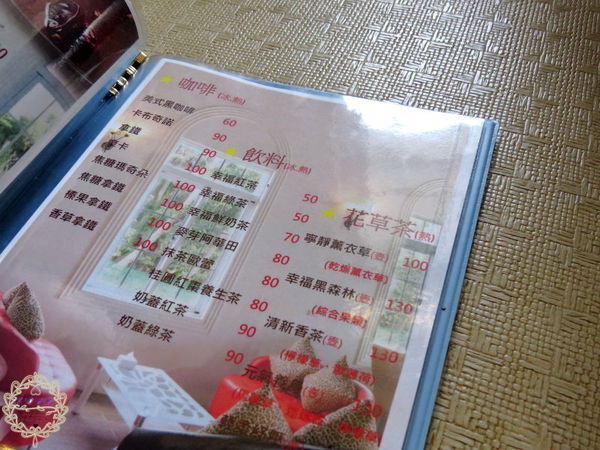 咖啡(冰.熱)
美式黑咖啡 60
卡布奇諾 90
拿鐵 90
卡 100
焦糖瑪奇朵 100
焦糖拿鐵 100
榛果拿鐵 100
香草拿鐵 100
飲料(冰.熱)
幸福紅茶 50
幸福綠茶 50
幸福鮮奶茶 70
麥芽阿華田 80
抹茶歐蕾 80
桂圓紅棗養生茶 80
奶蓋紅茶 90
奶蓋綠茶 90
花草茶(熱)
寧靜薰衣草(壺) 100
(乾燥薰衣草)
幸福黑森林(壺) 130
(綜合果粒)
清新香茶(壺) 130
(檸檬草
元氣